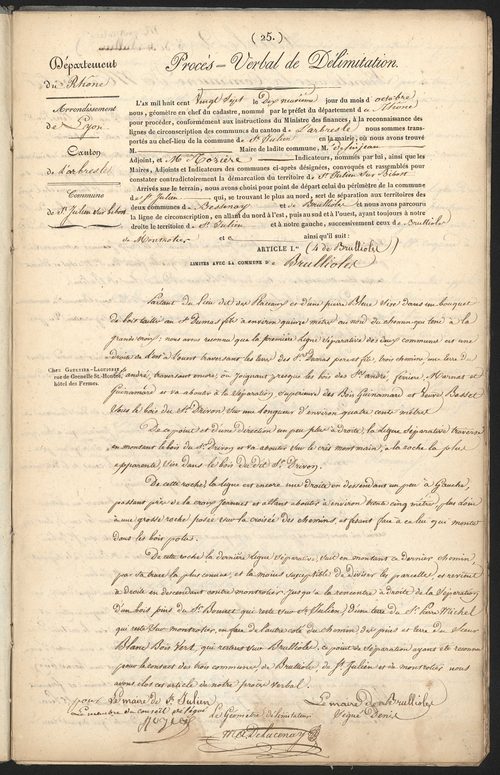 ( 25. )
Département
du Rhône
Procès-Verbal de Délimitation.
Arrondissement
de Lyon
Canton
de L'arbresle
Commune
de St. Julien sur bibost
L'AN mil huit cent Vingt Sept le Dix neuvième jour du mois d'octobre
nous, géomètre en chef du cadastre, nommé par le préfet du département du Rhône
pour procéder, conformément aux instructions du Ministre des finances, à la reconnaissance des
lignes de circonscription des communes du canton de L'arbresle nous sommes trans-
portés au chef-lieu de la commune de St. Julien en la mairie, où nous avons trouvé
M. Maire de ladite commune, M.
Adjoint, et M. Indicateurs, nommés par lui, ainsi que les
Maires, Adjoints et Indicateurs des communes ci-après désignées, convoqués et rassemblés pour
constater contradictoirement la démarcation du territoire de St. Julien Sur Bibost
Arrivés sur le terrain, nous avons choisi pour point de départ celui du périmètre de la commune
de St. Julien qui, se trouvant le plus au nord, sert de séparation aux territoires des
deux communes de Bessenay et de Brulliole et nous avons parcouru
la ligne de circonscription, en allant du nord à l'est, puis au sud et à l'ouest, ayant toujours à notre
droite le territoire de St. Julien et à notre gauche, successivement ceux de Brulliole
de Montrotier et ainsi qu'il suit :
ARTICLE I.er (4 de Brulliole)
LIMITES AVEC LA COMMUNE D e Brullioles
Partant du lieu dit des et d'une pierre Bleue fixe dans un bouquet
de bois taillis au St. Dumas fils à environ quinze mètres au nord du chemin qui tend à la
grande croix; nous avons reconnu que la première ligne Séparative des deux communes est une
droite de à l'ouest traversant les terres des Srs. Dumas père et fils, trois chemins, une terre du
Sr. andré, traversant encore, ou joignant presque les bois des Srs. andré, férière, Marnas et
Guinamard et va aboutir à la Séparation supérieure des Bois Guinamard et veuve Basset
Sous le bois du Sr. Drivon Sur une longueur d'environ quatre cents mètres
De ce point et d'une direction un peu plus à droite, la ligne Séparative traverse
en montant le bois du Sr. Drivon et va aboutir Sur le crêt mont main, à la roche la plus
apparente, Sise dans le bois du dit Sr. Drivon.
De cette roche, la ligne est encore une droite en descendant un peu à Gauche,
passant près de la croix Joannes et allant aboutir à environ trente cinq mètres, plus loin
à une grosse roche fixée Sur la croisée des chemins, et faisant face à celui qui monte
dans les bois
De cette roche la dernière ligne Séparative, Suit en montant ce dernier chemin,
par sa trace la plus connue, et la moins susceptible de diviser les parcelles, et revient
à droite en descendant contre montrotier jusqu'à la rencontre à droite de la Séparation
d'un bois pins du Sr. Bouvet qui reste Sur St. Julien) d'une terre du Sr. Pierre Michel
qui reste Sur montrotier, en face de l'autre côté du chemin, des pins et terre du Sieur
Blanc Bois Vert, qui restent Sur Brulliole, ce point de Séparation ayant été reconnu
pour le contact des trois communes de Brulliole, de St. Julien et de montrotier nous
avons clos cet article de notre procès verbal.
Chez GAUTHIER-LAGUIONIE,
rue de Grenelle St.-Honoré,
hôtel des Fermes.
pour Le maire de St. Julien
Le membre du conseil délégué
Le Géomètre délimitateur
Le maire de Brullioles
Signé Denis